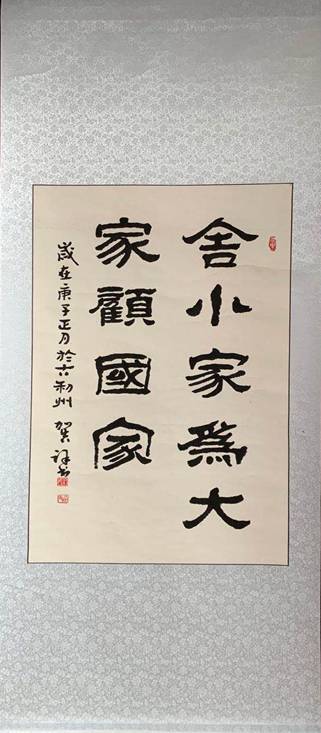 舍小家為大
家顧國家
歲在庚子正月於古利州 賀祥書